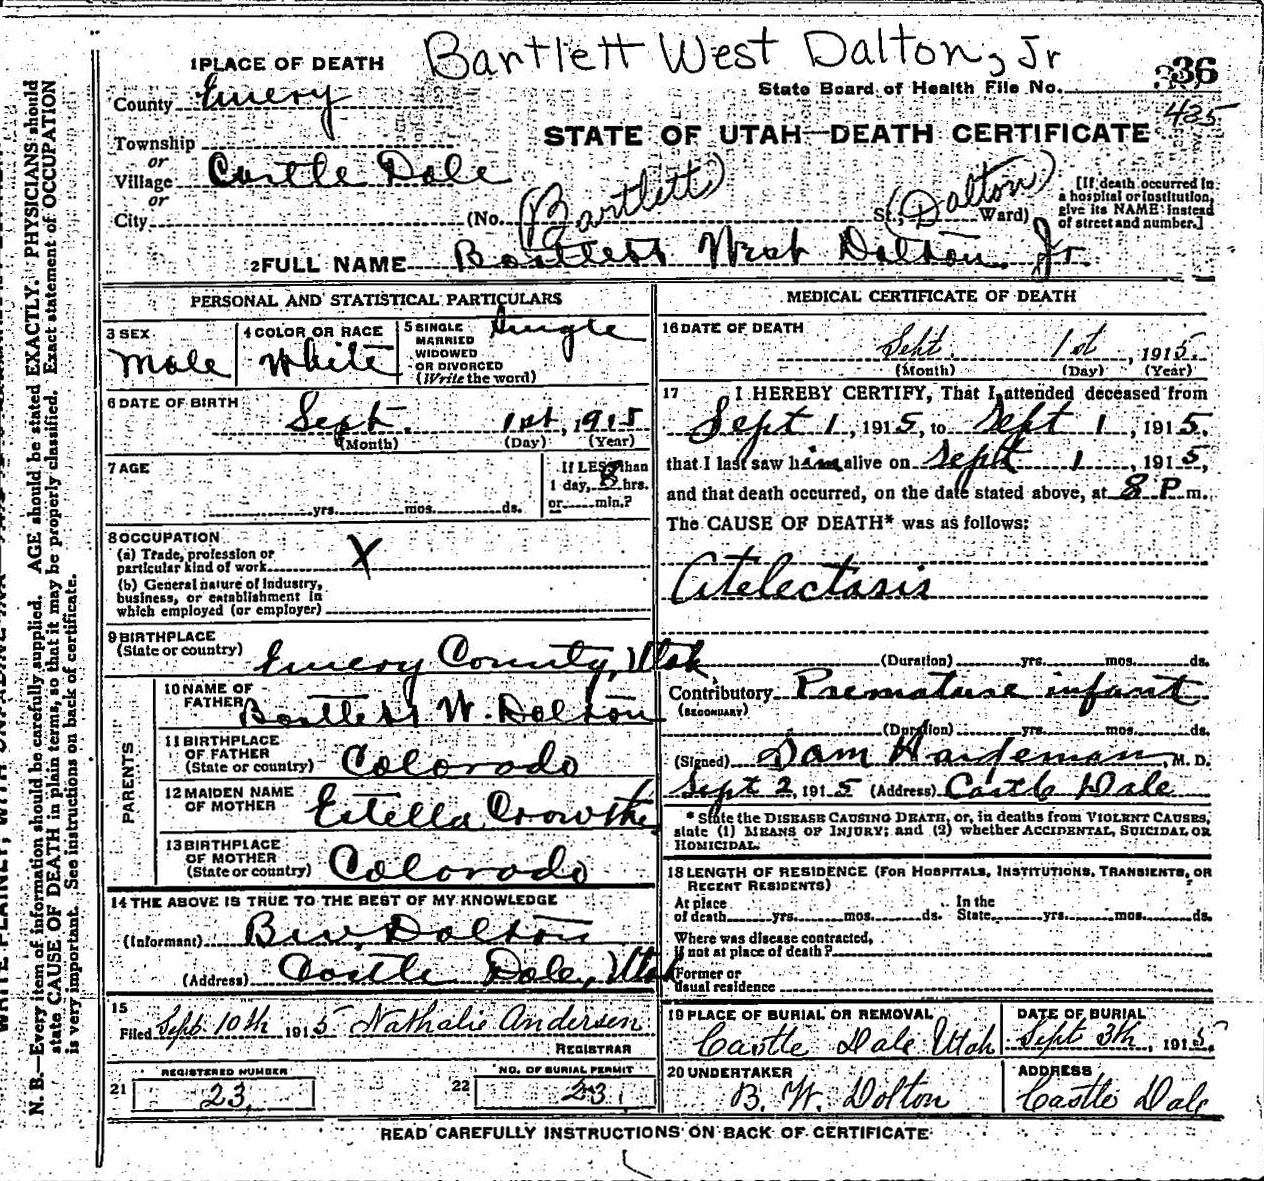 Bartlett West Dalton, Jr
1 PLACE OF DEATH
36
County Emery
State Board of Health File No.
425
Township
STATE OF UTAH—DEATH CERTIFICATE
or
Village Castle Dale
or
City (No. (Bartlett) St. (Dalton) Ward)
[If death occurred in
a hospital or institution,
give its NAME instead
of street and number.]
2 FULL NAME Bartlett West Dalton Jr.
PERSONAL AND STATISTICAL PARTICULARS
3 SEX
Male
4 COLOR OR RACE
White
5 SINGLE
MARRIED
WIDOWED
OR DIVORCED
(Write the word)
Single
6 DATE OF BIRTH
Sept. 1st, 1915
(Month) (Day) (Year)
7 AGE
yrs. mos. ds.
If LESS than
1 day, 8 hrs.
or min.?
8 OCCUPATION
(a) Trade, profession or
particular kind of work X
(b) General nature of industry,
business, or establishment in
which employed (or employer)
9 BIRTHPLACE
(State or country) Emery County, Utah
PARENTS
10 NAME OF
FATHER Bartlett W. Dalton
11 BIRTHPLACE
OF FATHER
(State or country) Colorado
12 MAIDEN NAME
OF MOTHER Estella Crowther
13 BIRTHPLACE
OF MOTHER
(State or country) Colorado
14 THE ABOVE IS TRUE TO THE BEST OF MY KNOWLEDGE
(Informant) B.W. Dalton
(Address) Castle Dale, Utah
15
Filed Sept. 10th 1915 Nathalie Andersen
REGISTRAR
21
REGISTERED NUMBER
23
22
NO. OF BURIAL PERMIT
23
MEDICAL CERTIFICATE OF DEATH
16 DATE OF DEATH
Sept. 1st, 1915
(Month) (Day) (Year)
17 I HEREBY CERTIFY, That I attended deceased from
Sept 1, 1915, to Sept 1, 1915,
that I last saw him alive on Sept 1, 1915,
and that death occurred, on the date stated above, at 8 P m.
The CAUSE OF DEATH* was as follows:
Atelectasis
(Duration) yrs. mos. ds.
Contributory Premature infant
(SECONDARY)
(Duration) yrs. mos. ds.
(Signed) Dam Hardeman, M. D.
Sept 2, 1915 (Address) Castle Dale
* State the DISEASE CAUSING DEATH, or, in deaths from VIOLENT CAUSES,
state (1) MEANS OF INJURY; and (2) whether ACCIDENTAL, SUICIDAL OR
HOMICIDAL.
18 LENGTH OF RESIDENCE (FOR HOSPITALS, INSTITUTIONS, TRANSIENTS, OR
RECENT RESIDENTS)
At place In the
of death yrs. mos. ds. State yrs. mos. ds.
Where was disease contracted,
if not at place of death?
Former or
usual residence
19 PLACE OF BURIAL OR REMOVAL
Castle Dale Utah
DATE OF BURIAL
Sept 3th, 1915.
20 UNDERTAKER
B. W. Dolton
ADDRESS
Castle Dale
READ CAREFULLY INSTRUCTIONS ON BACK OF CERTIFICATE
N. B.—Every item of information should be carefully supplied. AGE should be stated EXACTLY. PHYSICIANS should
state CAUSE OF DEATH in plain terms, so that it may be properly classified. Exact statement of OCCUPATION
is very important. See instructions on back of certificate.